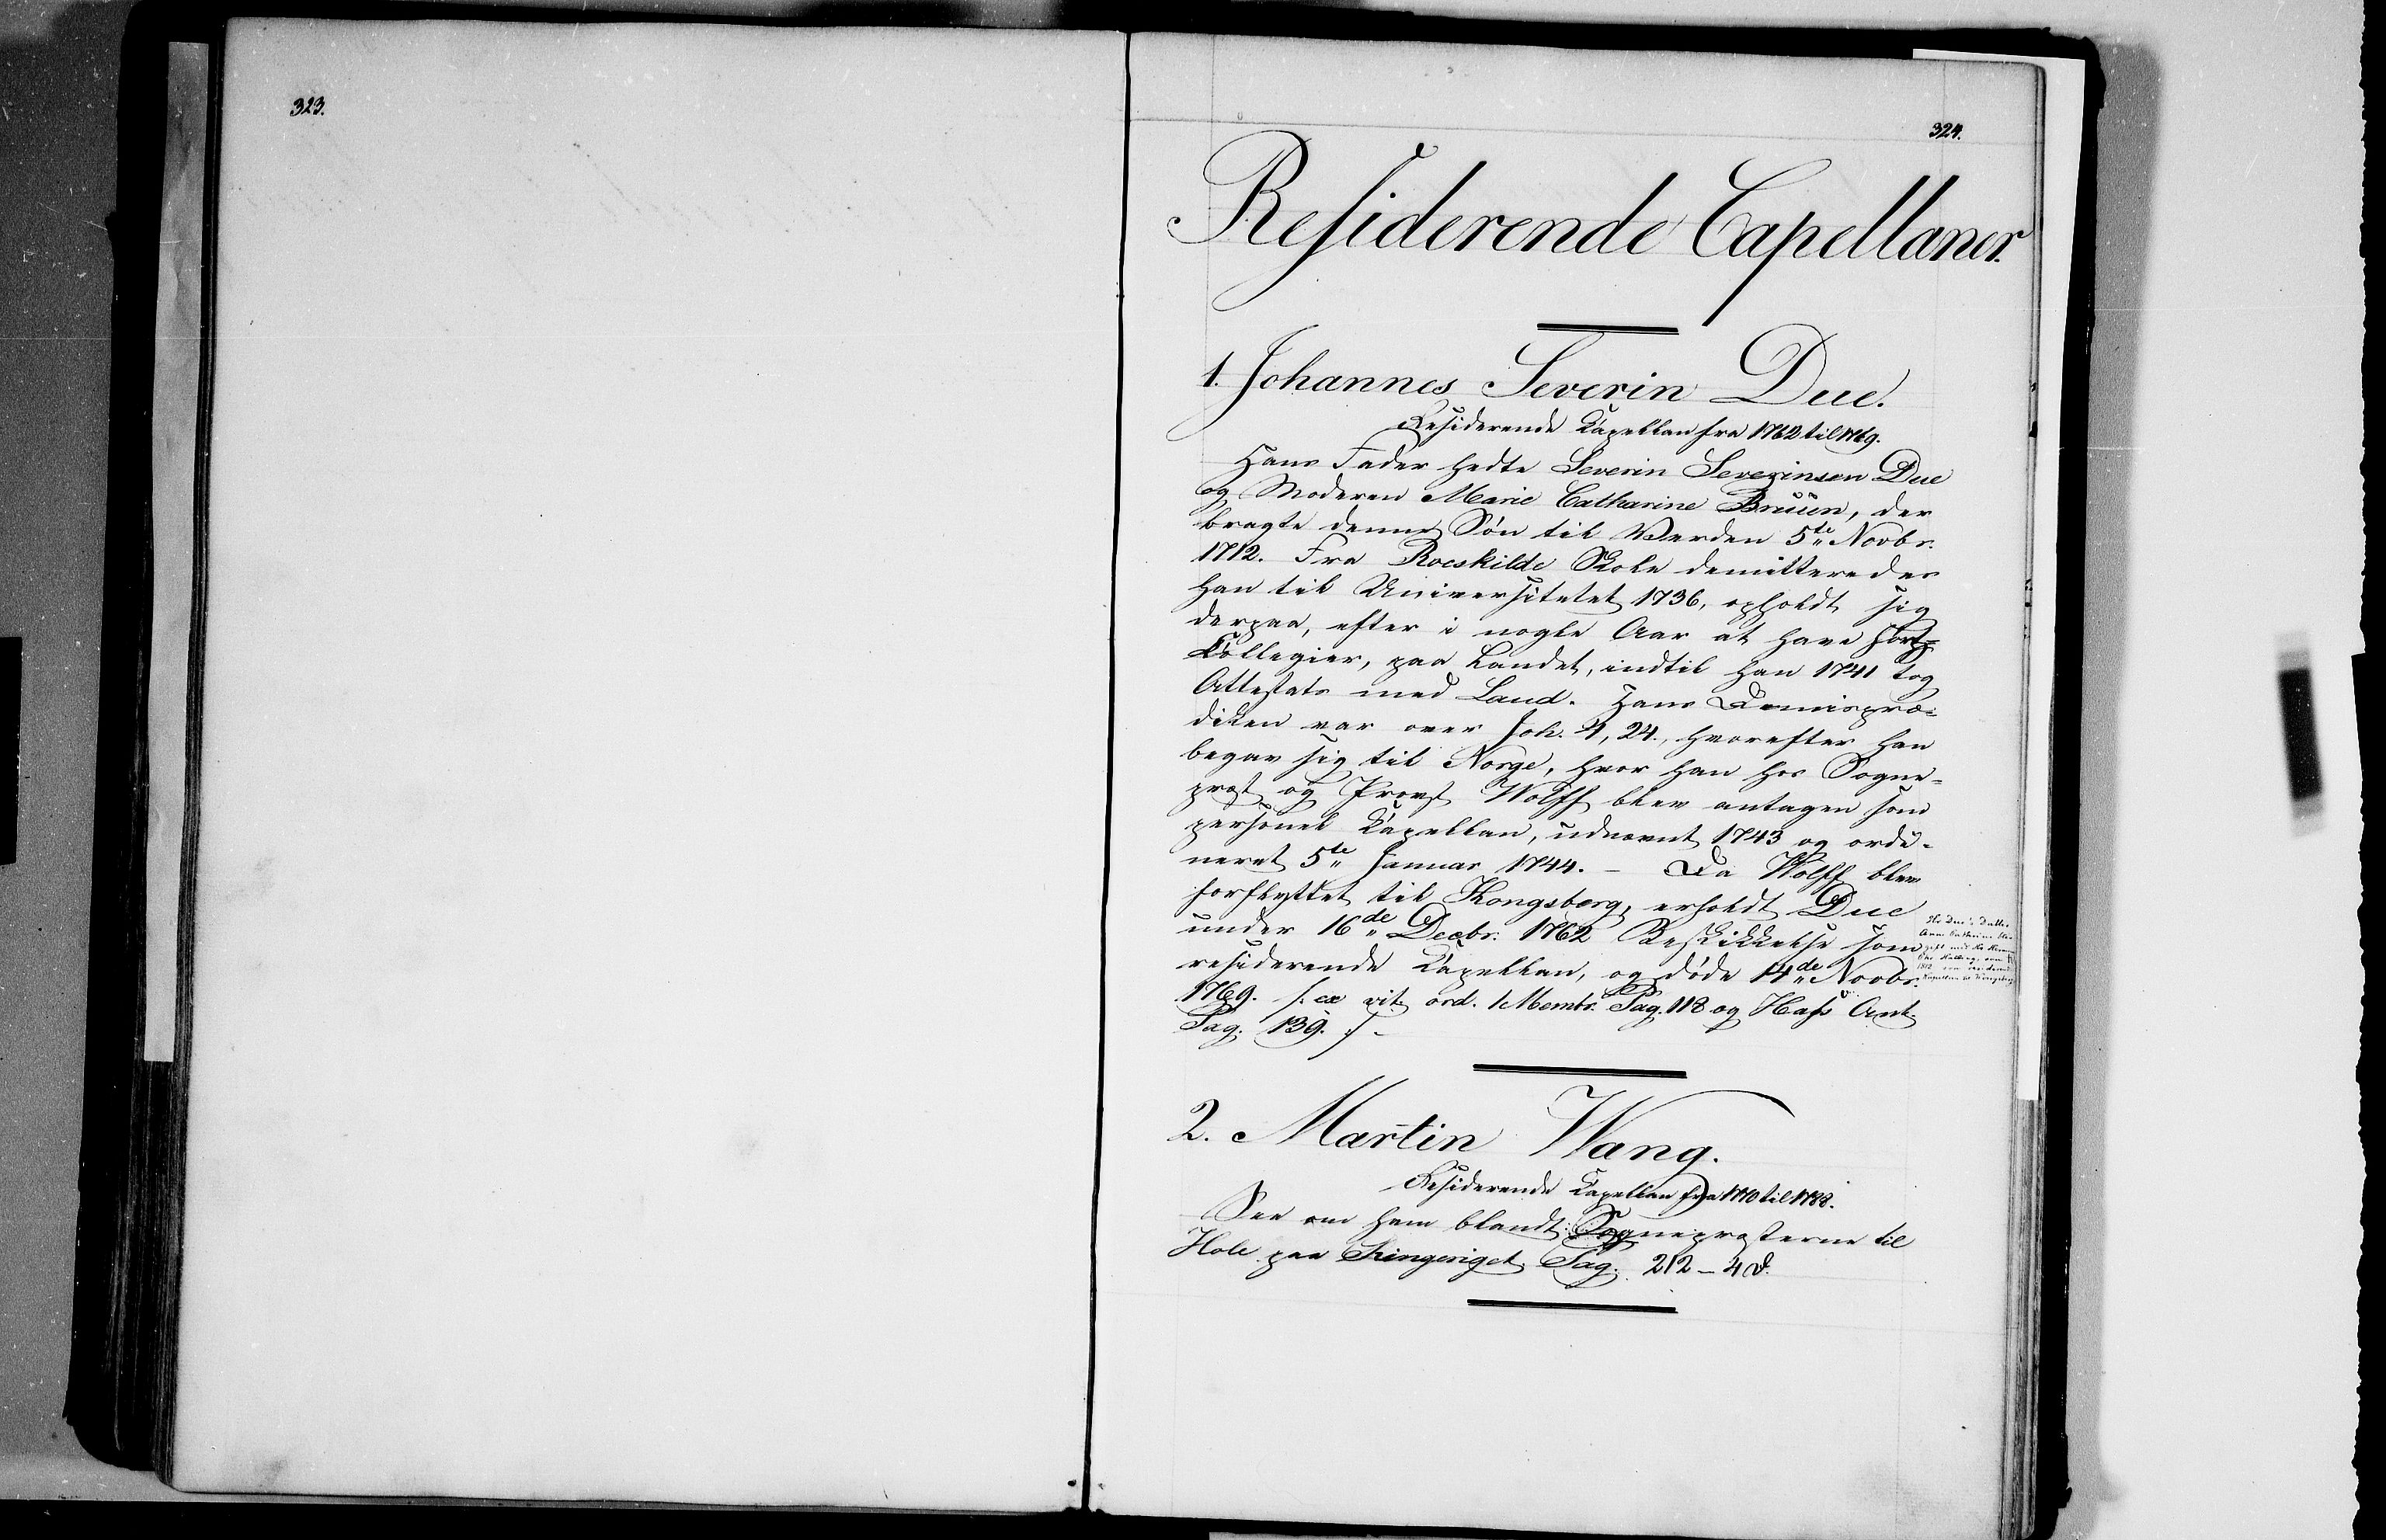 323.
324.
Residerende Capellaner.
1. Johannes Severin Due.
Residerende Kapellan fra 1762 til 1769.
Hans Fader hedte Severin Severinsen Due
og Moderen Marie Catharine Bruun, der
bragte denne Søn til Verden 5te Novbr.
1712. Fra Roeskilde Skole demitteredes
han til Universitetet 1736, opholdt sig
derpaa, efter i nogle Aar at have hørt
Collegier, paa Landet, indtil han 1741 tog
Attestats med Laud. Hans Demisprø-
diken var over Joh. 1, 24., hvorefter han
begav sig til Norge, hvor han hos Sogne-
præst og Provst Wolff blev antagen som
personel Kapellan, udnævnt 1743 og ordi-
neret 5te Januar 1744. – Da Wolff blev
forflyttet til Kongsberg, erholdt Due
under 16de Decbr. 1762 Beskikkelse som
residerende Kapellan, og døde 14de Novbr.
1769. /: ex vit. ord. 1 Membr. Pag. 118 og Hass Ant.
Pag. 139. :/ -
Hr Due's Datter
Anne Cathrine
gift med Hr
1812 som residerende
Kapellan til Kongsberg
2. Martin Wang.
Residerende Kapellan fra 1770 til 1788.
See om ham blandt Sognepræsterne til
Hole paa Ringeriget Pag. 212 – 4 d.